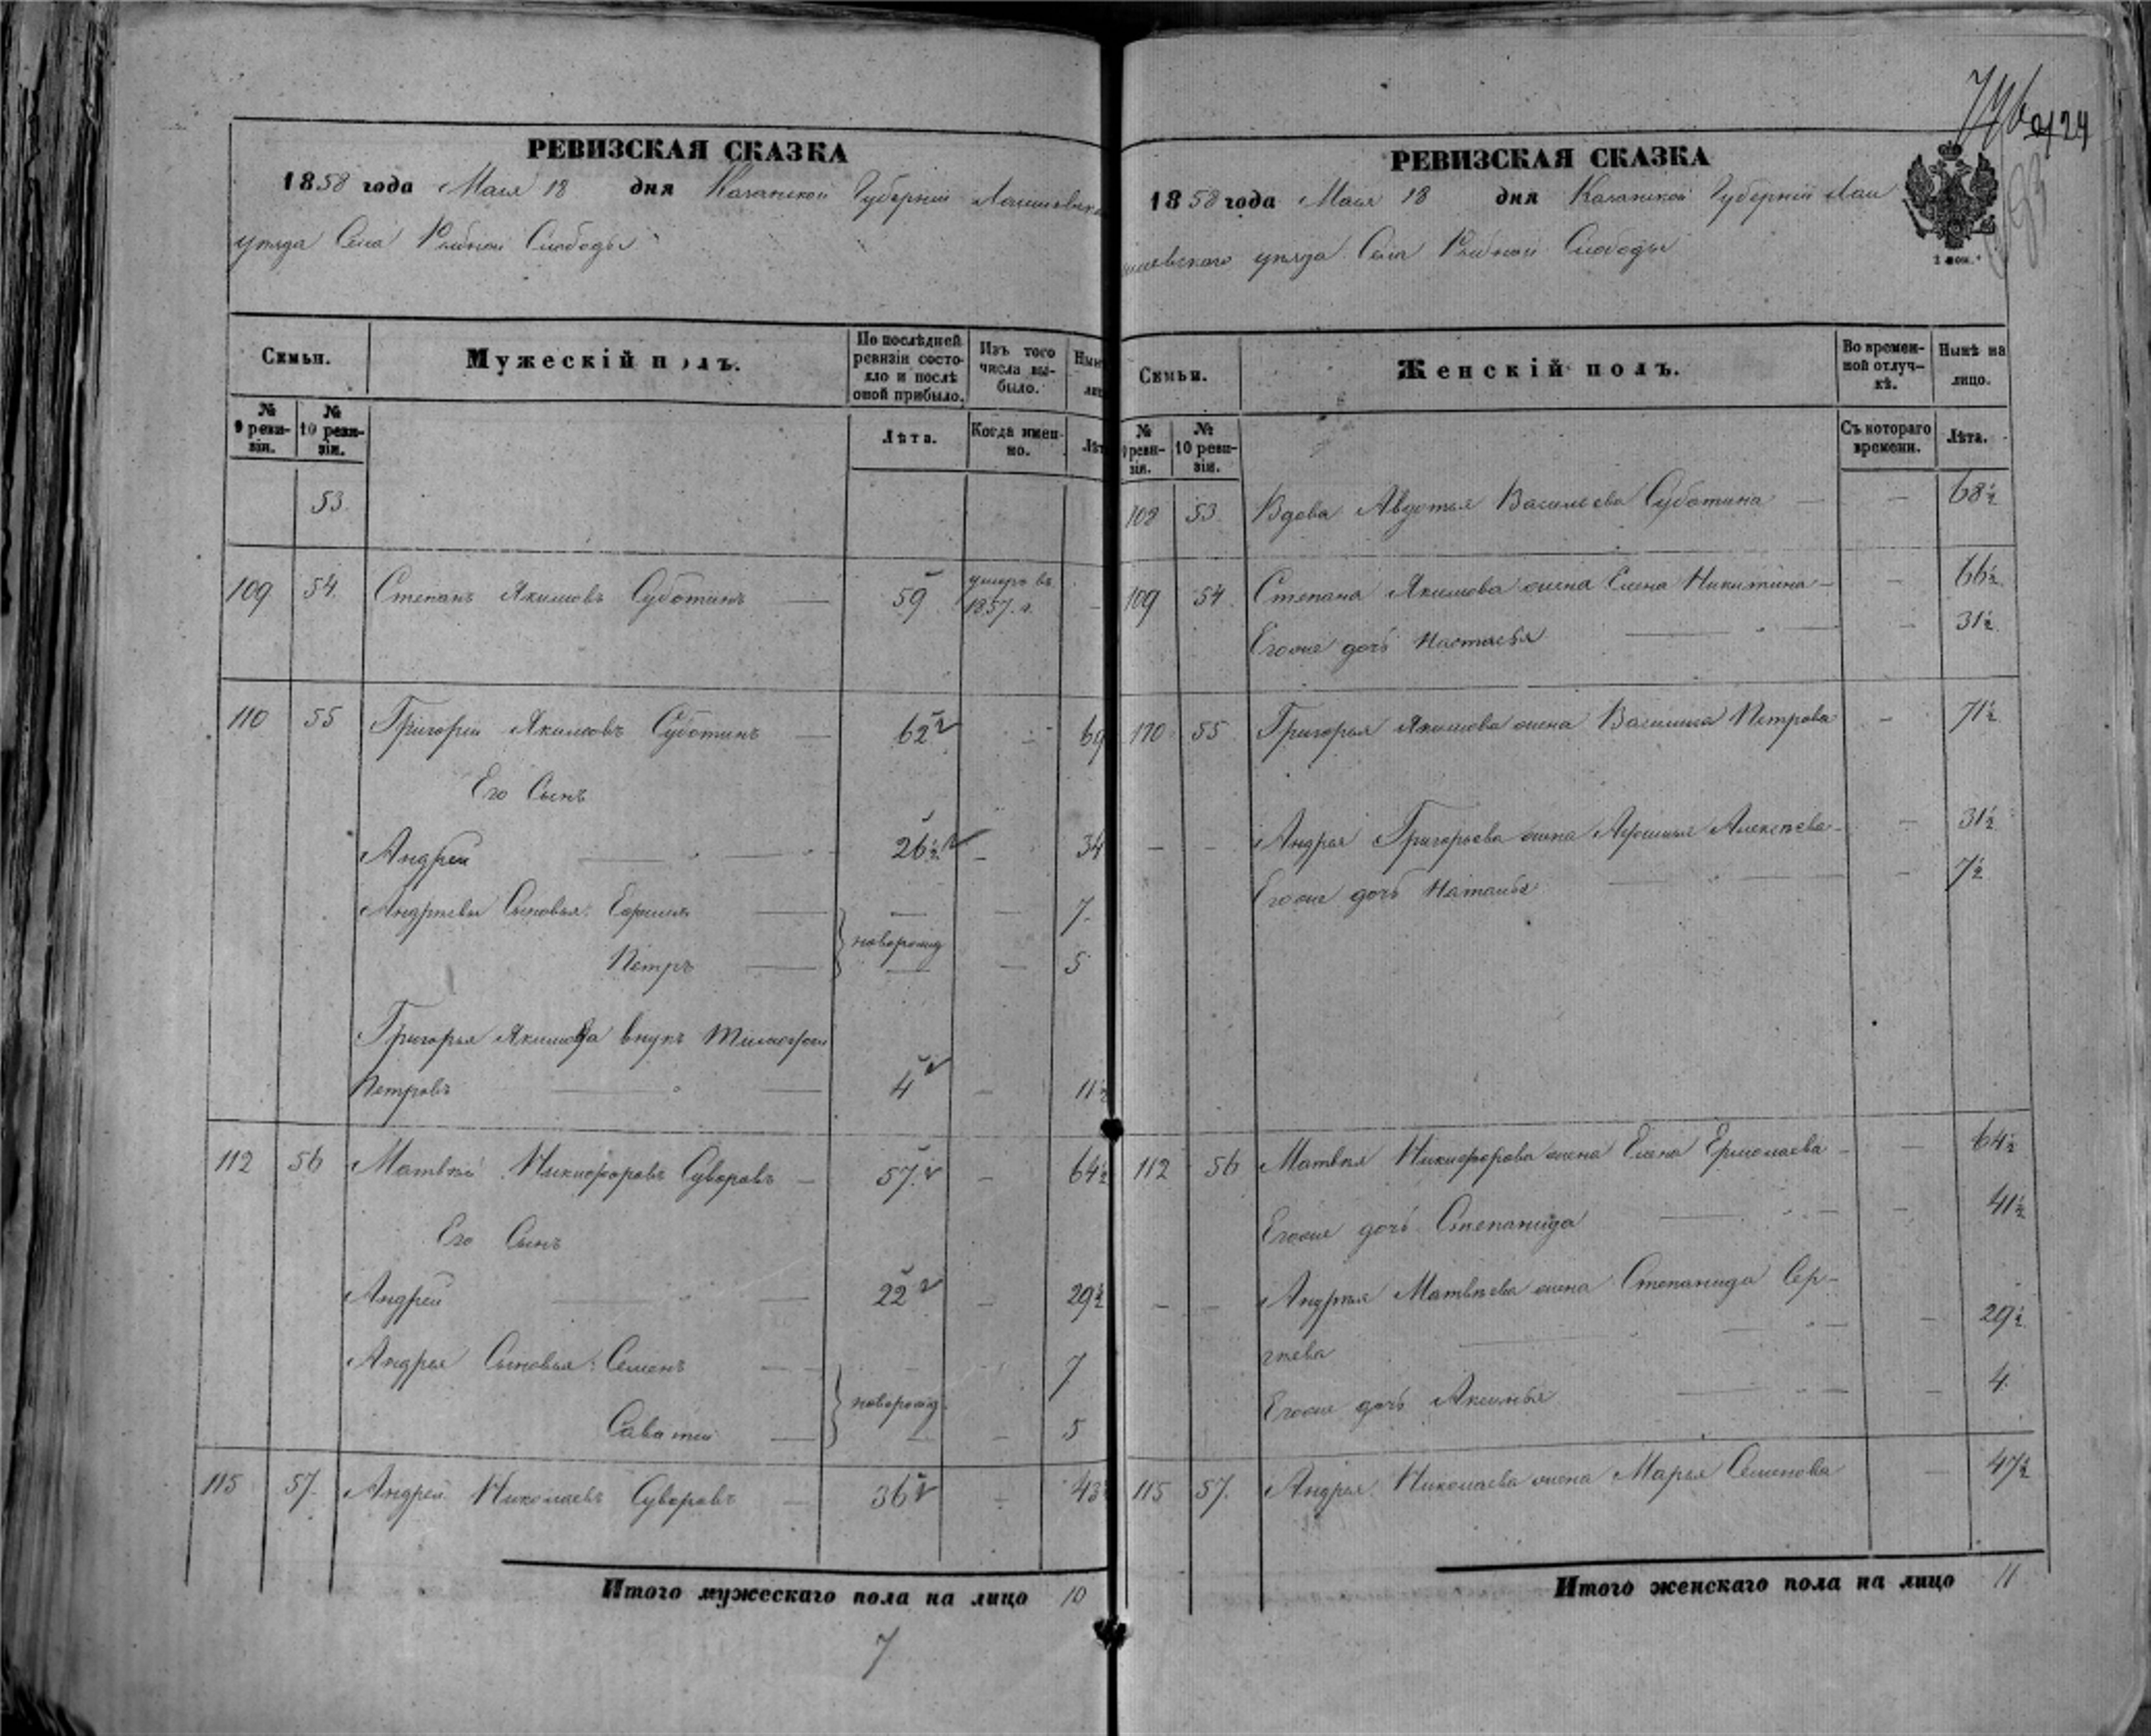 РЕВИЗСКАЯ СКАЗКА
1858 года Маия 18 дня Казанской Губерніи Лаишевска
уѣзда Села Рыбной Слободы
Семьи.
Мужескій полъ.
По послѣдней ревизіи состояло и послѣ оной прибыло.
Изъ того числа выбыло.
Нын
лиц
№ 9 ревизіи.
№ 10 ревизіи.
Лѣта.
Когда именно.
Лѣт
53
109 54. Степанъ Якимовъ Суботинъ — 59 умеръ въ 1857. г. —
110 55 Григорій Якимовъ Суботинъ — 62 — 69
Его Сынъ
Андрей — 26½ — 34
Андреевы Сыновья: Ефимъ — — — 7
новорожд
Петръ — — — 5
Григорья Якимова внукъ Тимофей
Петровъ — 4 — 11½
112 56 Матвѣй Никифоровъ Суворовъ — 57 — 64½
Его Сынъ
Андрей — 22 — 29½
Андрея Сыновья: Семенъ — 7
новорожд.
Саватей — — — 5
115 57. Андрей Николаевъ Суворовъ — 36 — 43
Итого мужескаго пола на лицо 10
7
24
РЕВИЗСКАЯ СКАЗКА
1858 года Маия 18 дня Казанской Губерніи Лаи
шевского уѣзда Села Рыбной Слободы
Семьи.
Женскій полъ.
Во временной отлучкѣ.
Нынѣ на лицо.
№ 9 ревизіи.
№ 10 ревизіи.
Съ котораго времени.
Лѣта.
108 53. Вдова Авдотья Васильева Суботина — — 68½
109 54. Степана Якимова жена Елена Никитина — — 66½
Егоже дочь Настасья — — 31½
110 55 Григорья Якимова жена Василиса Петрова — 71½
— — Андрея Григорьева жена Афимья Алексѣева — — 31½
Егоже дочь Наталья — — 7½
112 56 Матвѣя Никифорова жена Елена Ермолаева — — 64½
Егоже дочь Степанида — — 41½
— — Андрея Матвѣева жена Степанида Сер-
гѣева — — 29½
Егоже дочь Аксинья — — 4
115 57. Андрея Николаева жена Марья Семенова — 47½
Итого женскаго пола на лицо 11